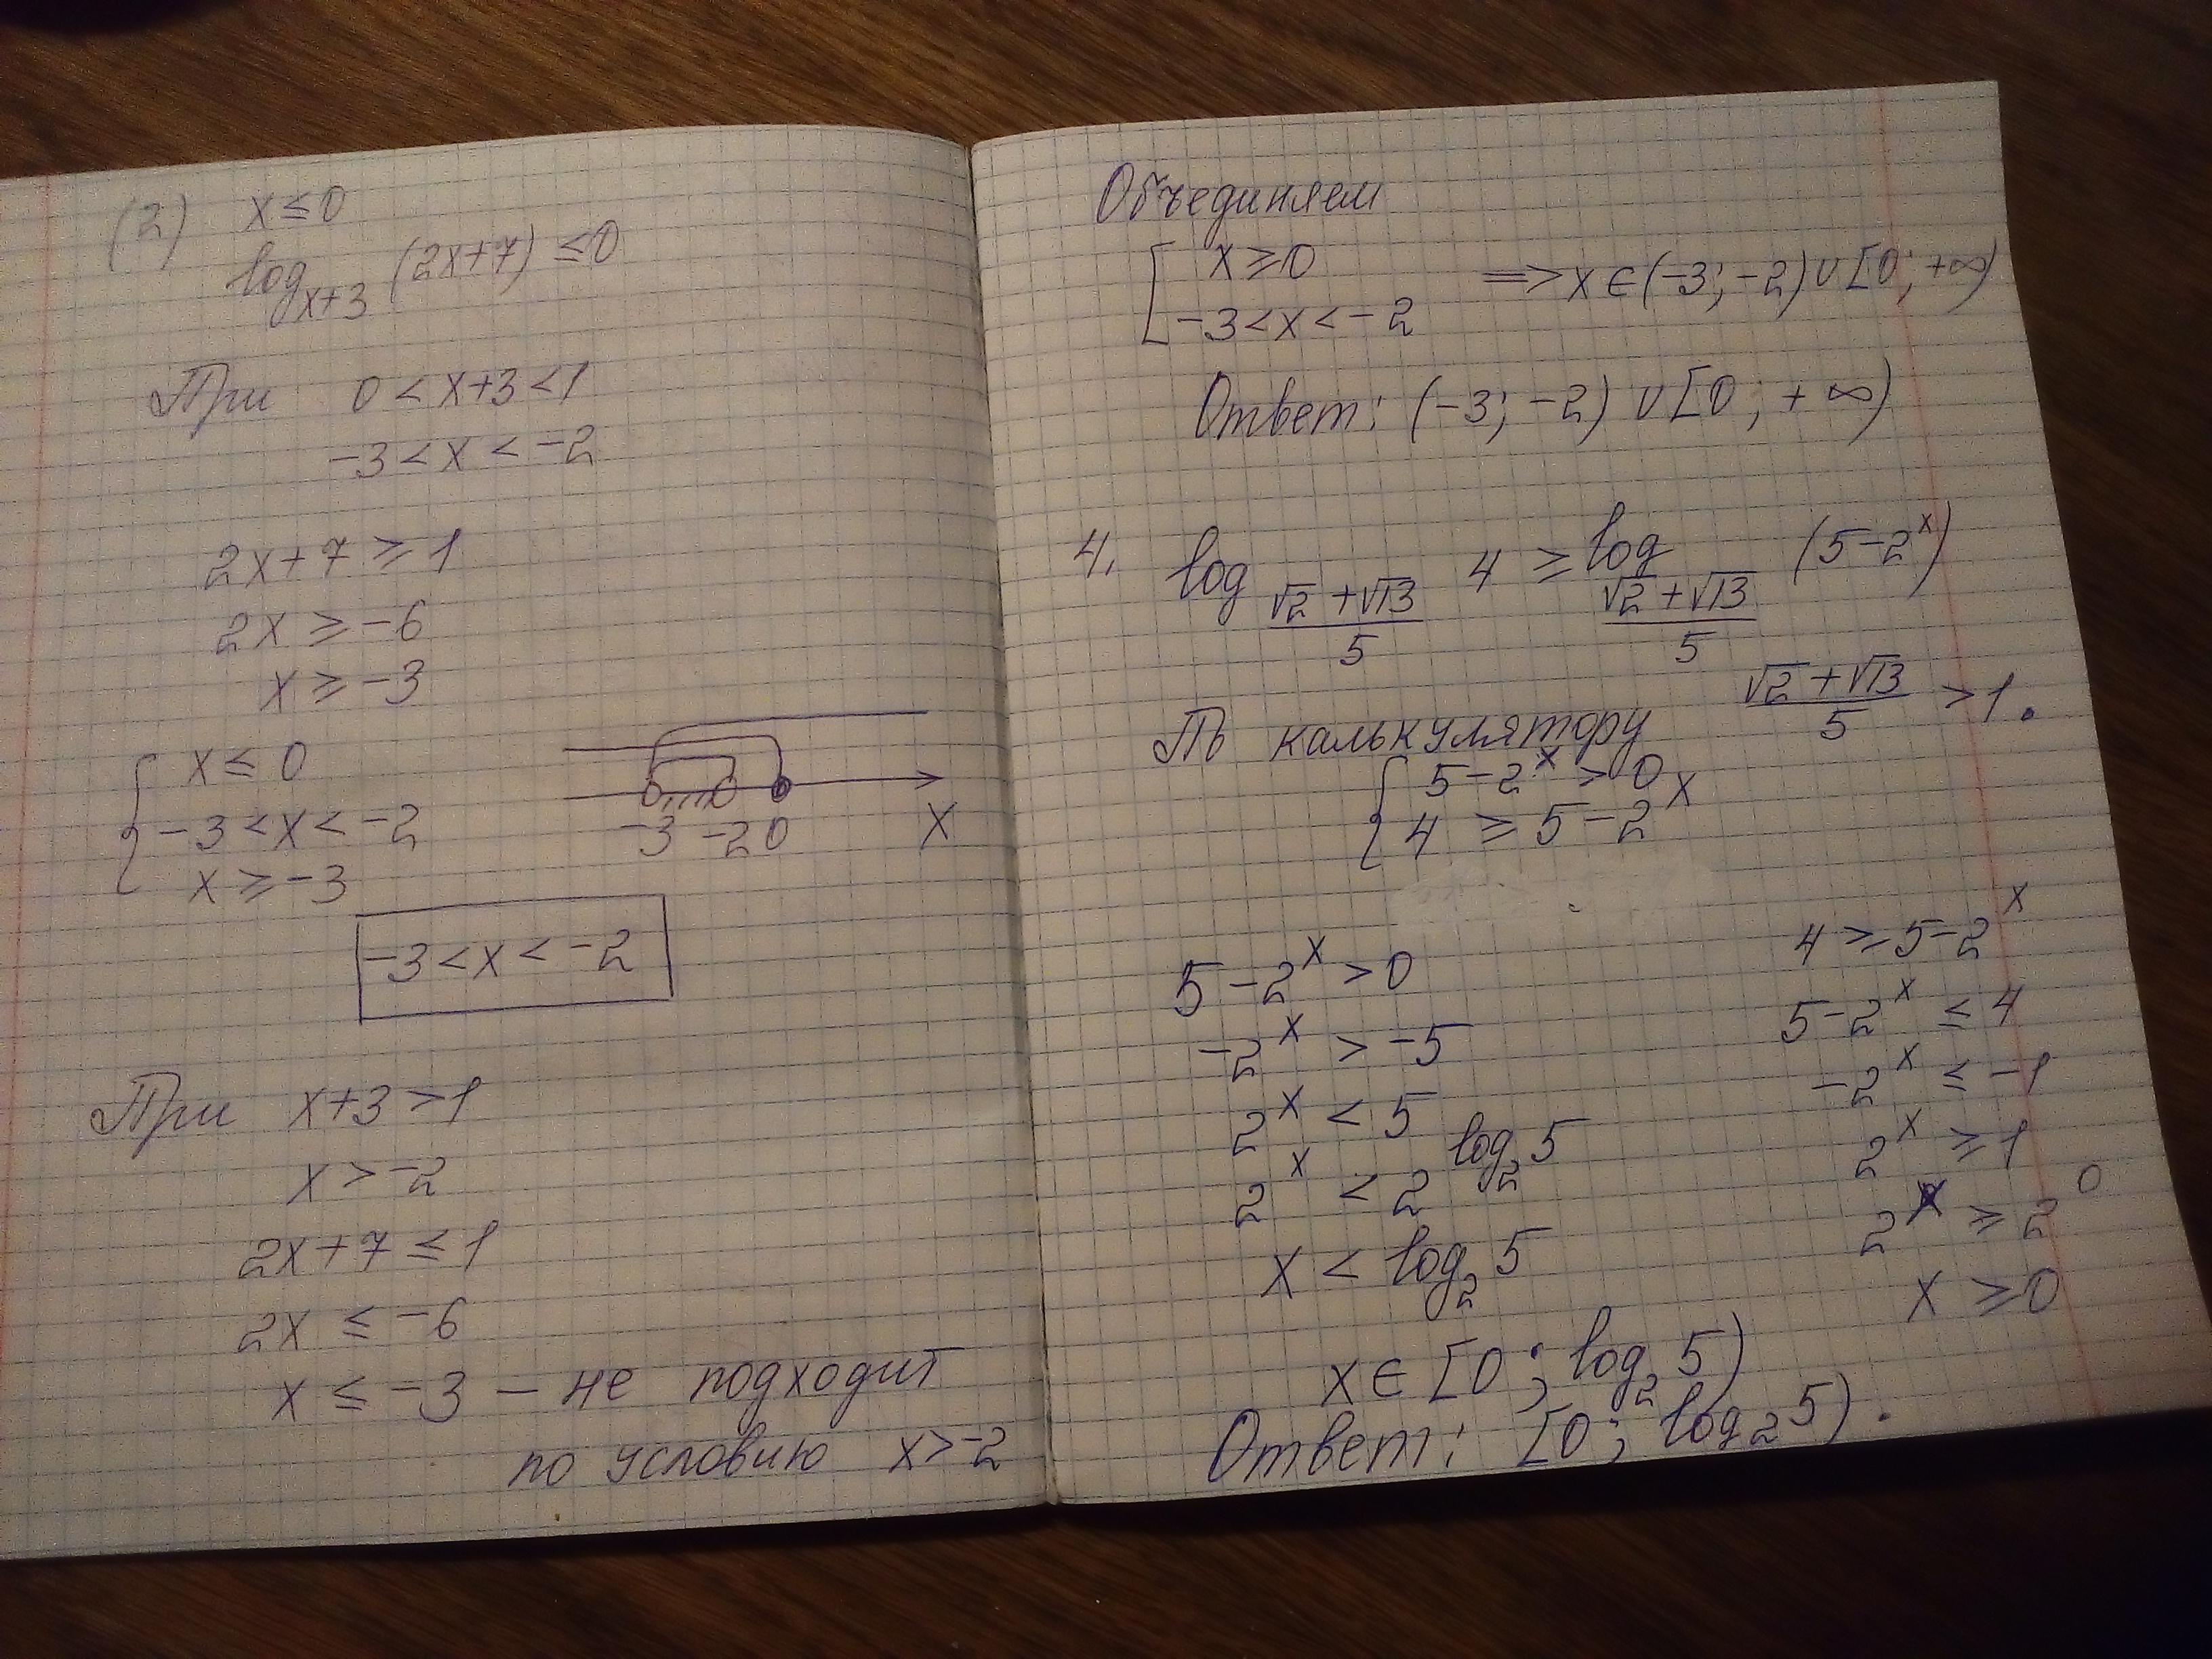 (2) x ≤ 0
log_{x+3} (2x+7) ≤ 0
При 0 < x+3 < 1
-3 < x < -2
2x+7 ≥ 1
2x ≥ -6
x ≥ -3
{ x ≤ 0
-3 < x < -2
x ≥ -3
-3 -2 0 x
-3 < x < -2
При x+3 > 1
x > -2
2x+7 ≤ 1
2x ≤ -6
x ≤ -3 — не подходит
по условию x > -2
Объединяем
[ x ≥ 0
-3 < x < -2 => x ∈ (-3; -2) ∪ [0; +∞)
Ответ: (-3; -2) ∪ [0; +∞)
4. log_{(√2+√13)/5} 4 ≥ log_{(√2+√13)/5} (5-2^x)
По калькулятору (√2+√13)/5 > 1.
{ 5-2^x > 0
4 ≥ 5-2^x
5-2^x > 0
-2^x > -5
2^x < 5
2^x < 2^{log_2 5}
x < log_2 5
4 ≥ 5-2^x
5-2^x ≤ 4
-2^x ≤ -1
2^x ≥ 1
2^x ≥ 2^0
x ≥ 0
x ∈ [0; log_2 5)
Ответ: [0; log_2 5).